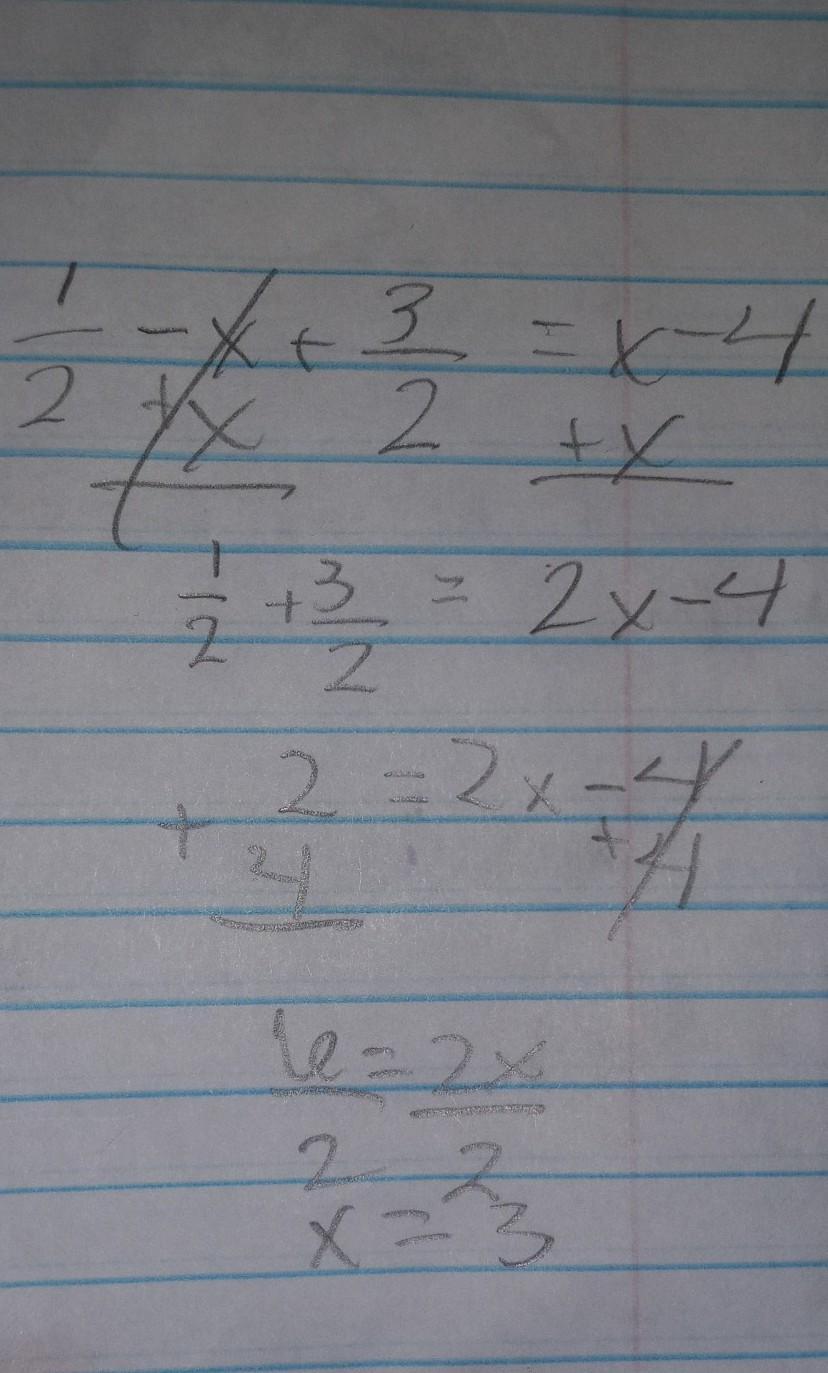 1/2 - x + 3/2 = x - 4
+ x + x
1/2 + 3/2 = 2x - 4
2 = 2x - 4
+ 4 + 4
6 = 2x
2 2
x = 3